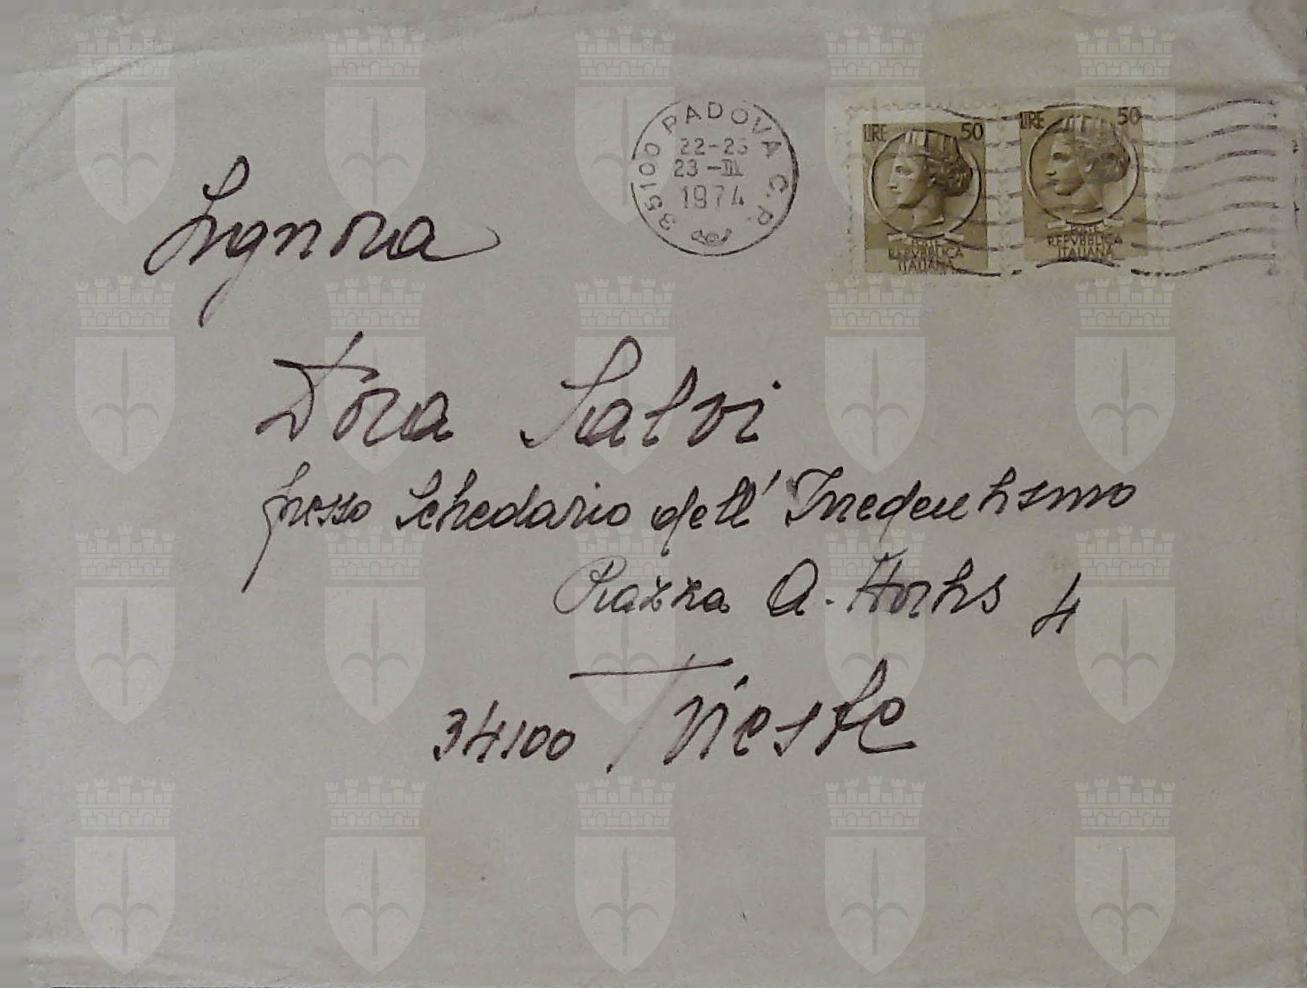 35100 PADOVA C.P.
22-23
23-III
1974
LIRE 50
REPVBBLICA
ITALIANA
LIRE 50
POSTE
REPVBBLICA
ITALIANA
Signora
Dora Salvi
presso Schedario dell'Irredentismo
Piazza A. Hortis 4
34100 Trieste